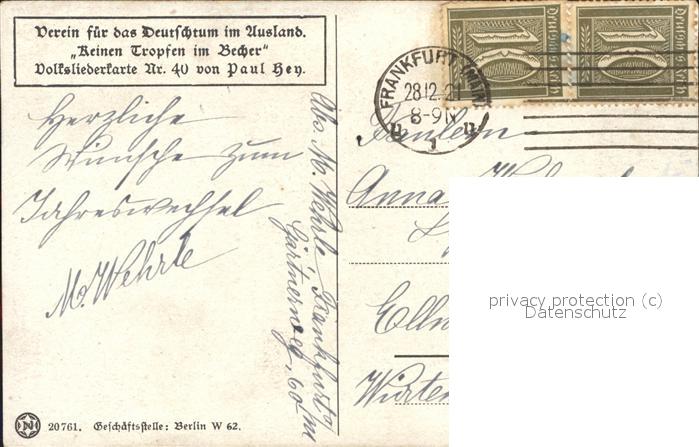 Verein für das Deutschtum im Ausland.
„Keinen Tropfen im Becher“
Volksliederkarte Nr. 40 von Paul Hey.
Herzliche
Wünsche zum
Jahreswechsel
M. Wehrle
Abs. M. Wehrle, Frankfurt a/M
Gärtnerweg 60
20761. Geschäftsstelle: Berlin W 62.
10 Deutsches Reich
10 Deutsches Reich
FRANKFURT (MAIN)
28.12.21
8-9 N
1
Fräulein
Anna
Elln
Würtem
privacy protection (c)
Datenschutz